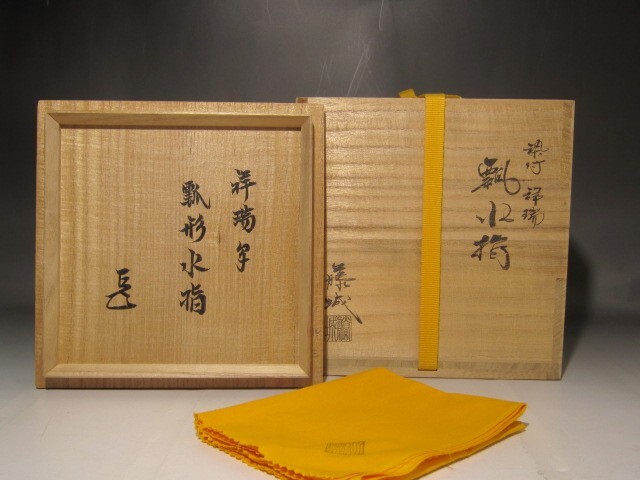 祥瑞写
瓢形水指
染付 祥瑞
瓢水指
藤城